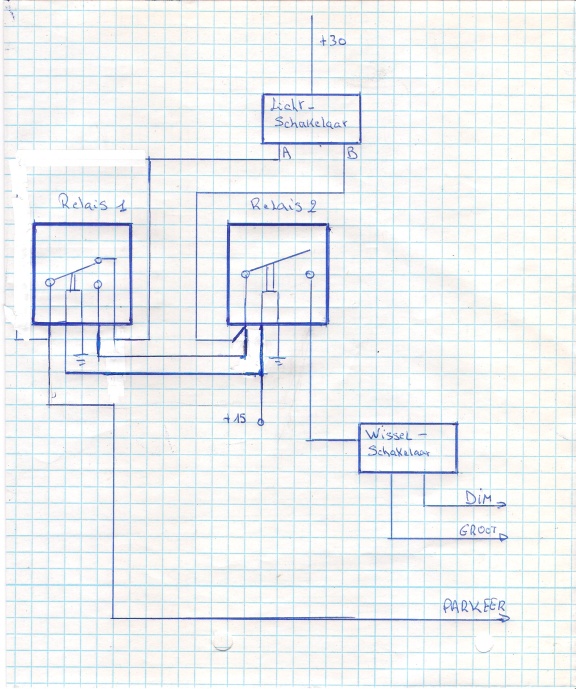 +30
Licht-
Schakelaar
A
B
Relais 1
Relais 2
+15
Wissel-
Schakelaar
DiM
GROOT
PARKEER